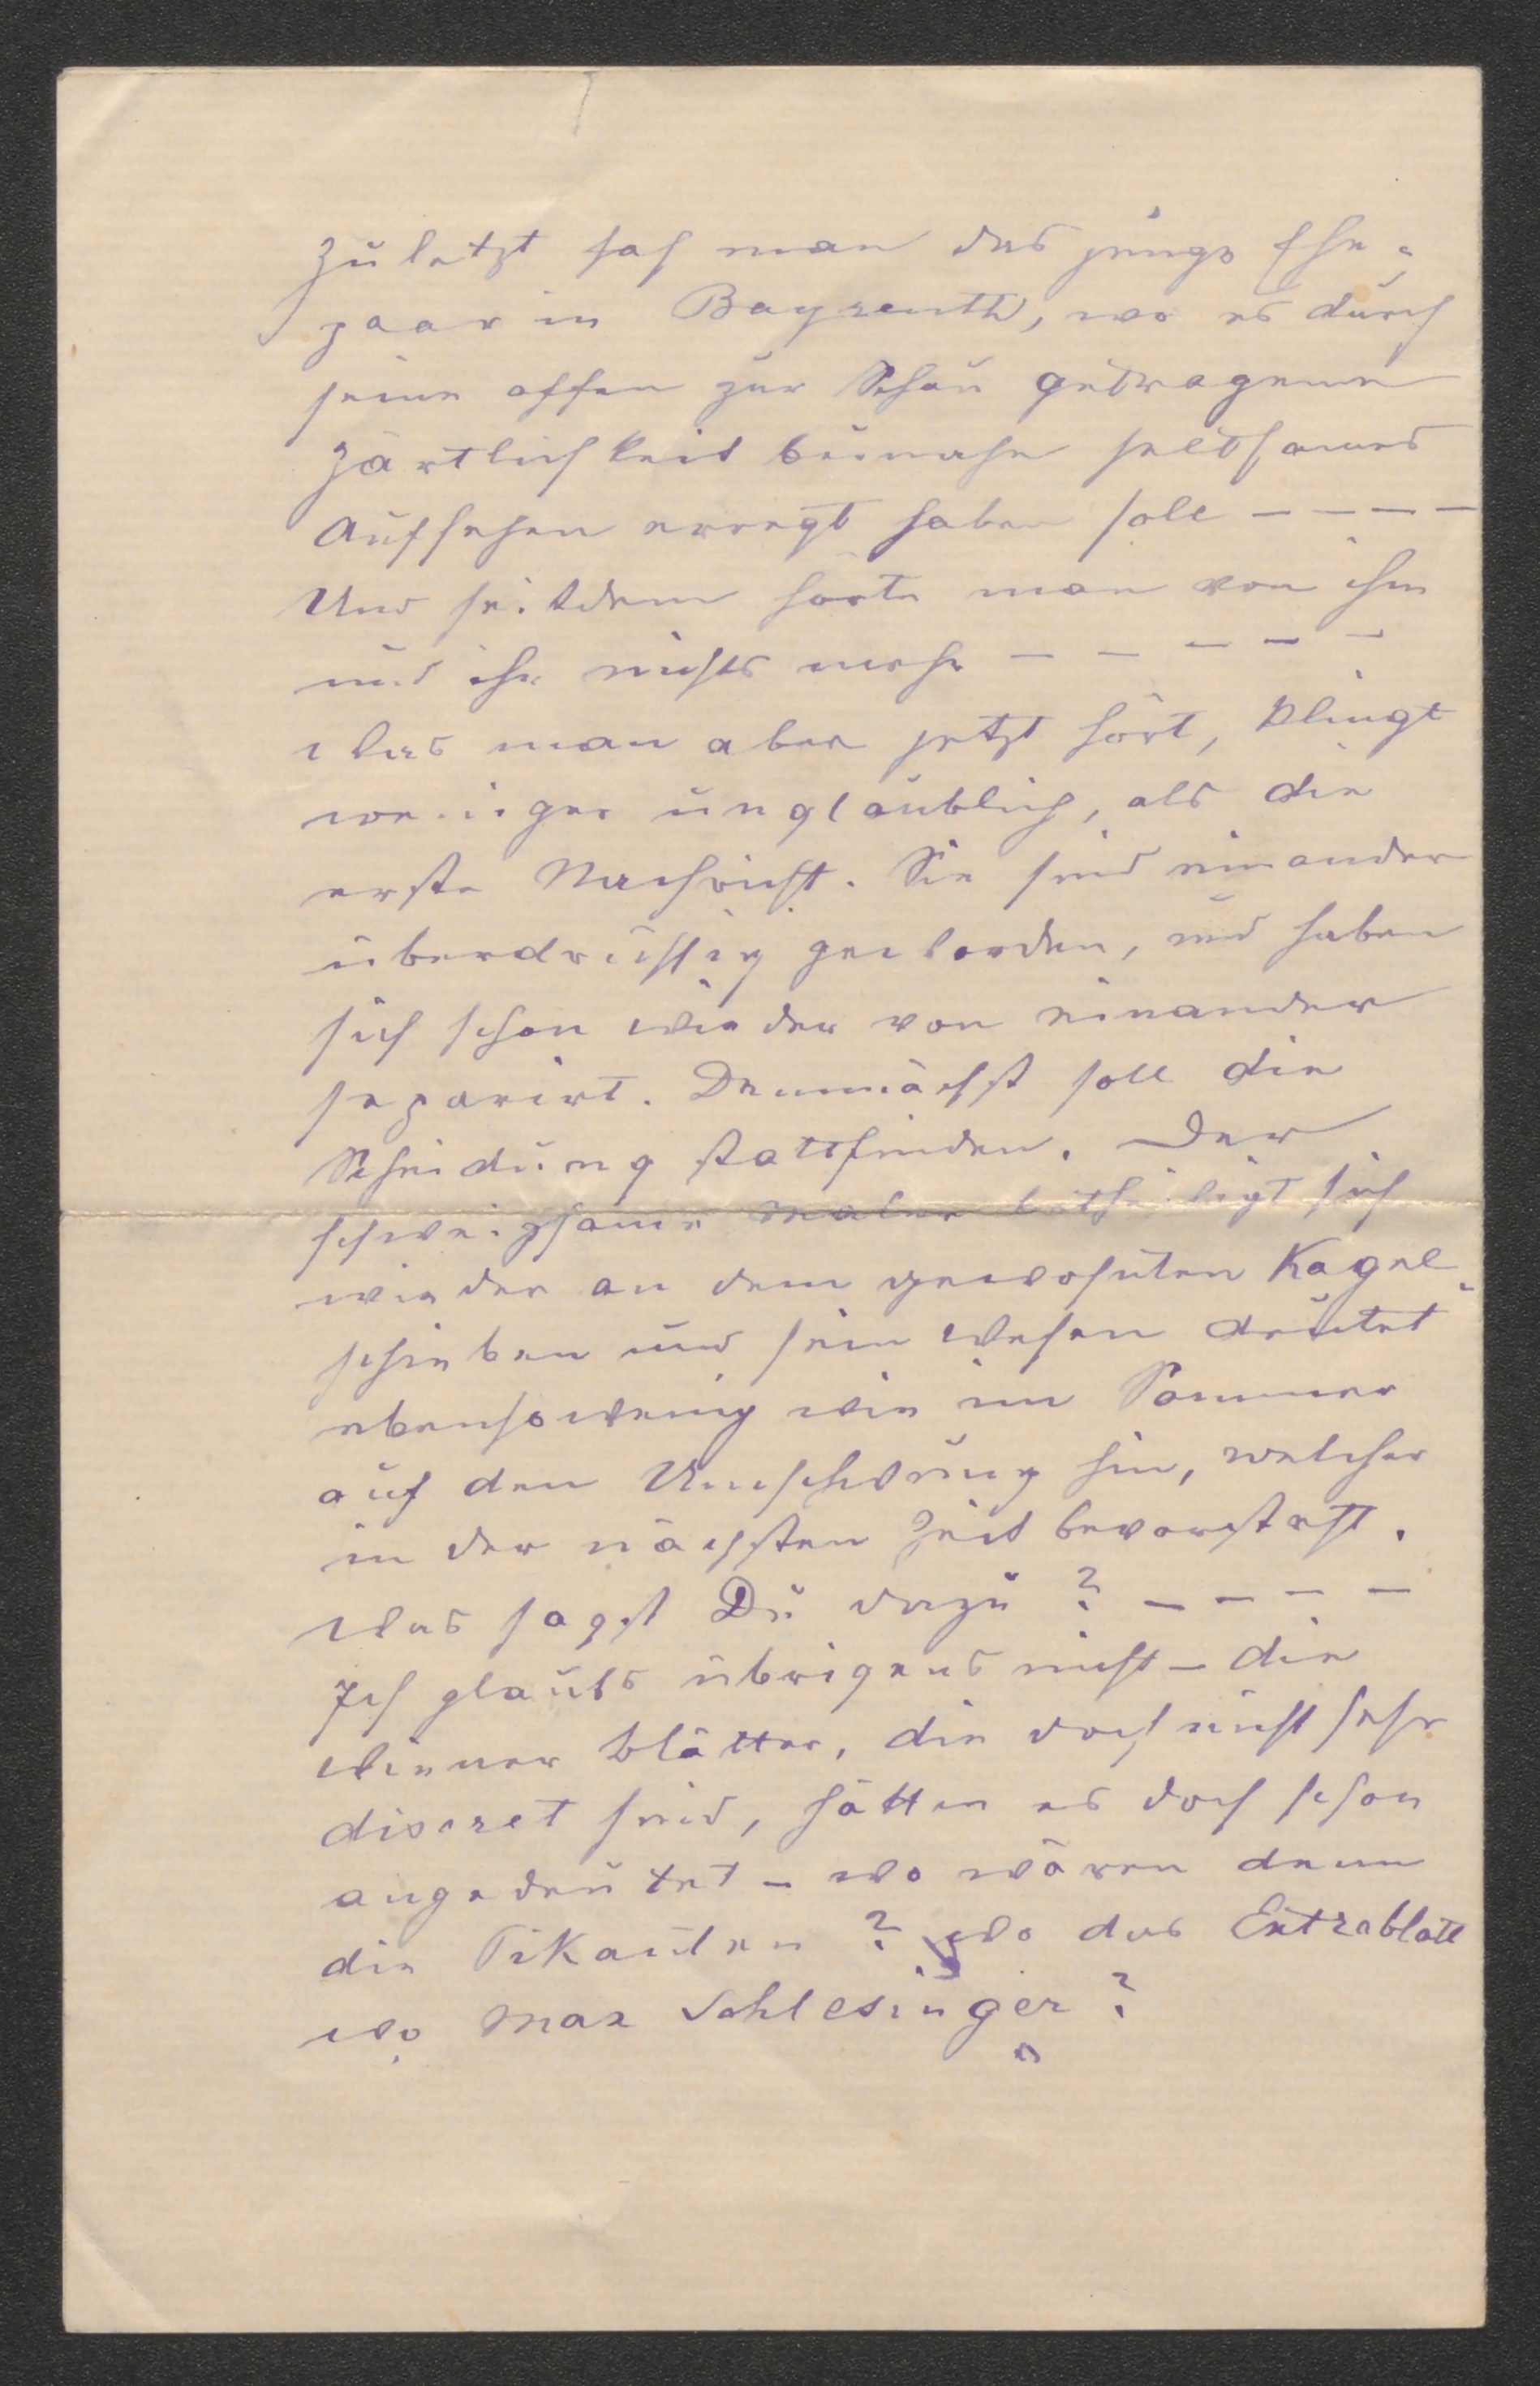 Zuletzt sah man das junge Ehe-
paar in Bayreuth, wo es durch
seine offen zur Schau getragene
Zärtlichkeit beinahe seltsames
Aufsehen erregt haben soll – – – –
Und seitdem hörte man von ihm
und ihr nichts mehr – – – – –
Was man aber jetzt hört, klingt
weniger unglaublich, als die
erste Nachricht. Sie sind einander
überdrüssig geworden, und haben
sich schon wieder von einander
separirt. Demnächst soll die
Scheidung stattfinden. Der
schweigsame Maler betheiligt sich
wieder an dem gewohnten Kegel-
schieben und sein Wesen deutet
ebensowenig wie im Sommer
auf den Umschwung hin, welcher
in der nächsten Zeit bevorsteht.
Was sagst Du dazu? – – – –
Ich glaubs übrigens nicht – die
Wiener Blätter, die doch nicht sehr
discret sind, hätten es doch schon
angedeutet – wo wären denn
die Pikanten? wo das Extrablatt
wo Max Schlesinger?